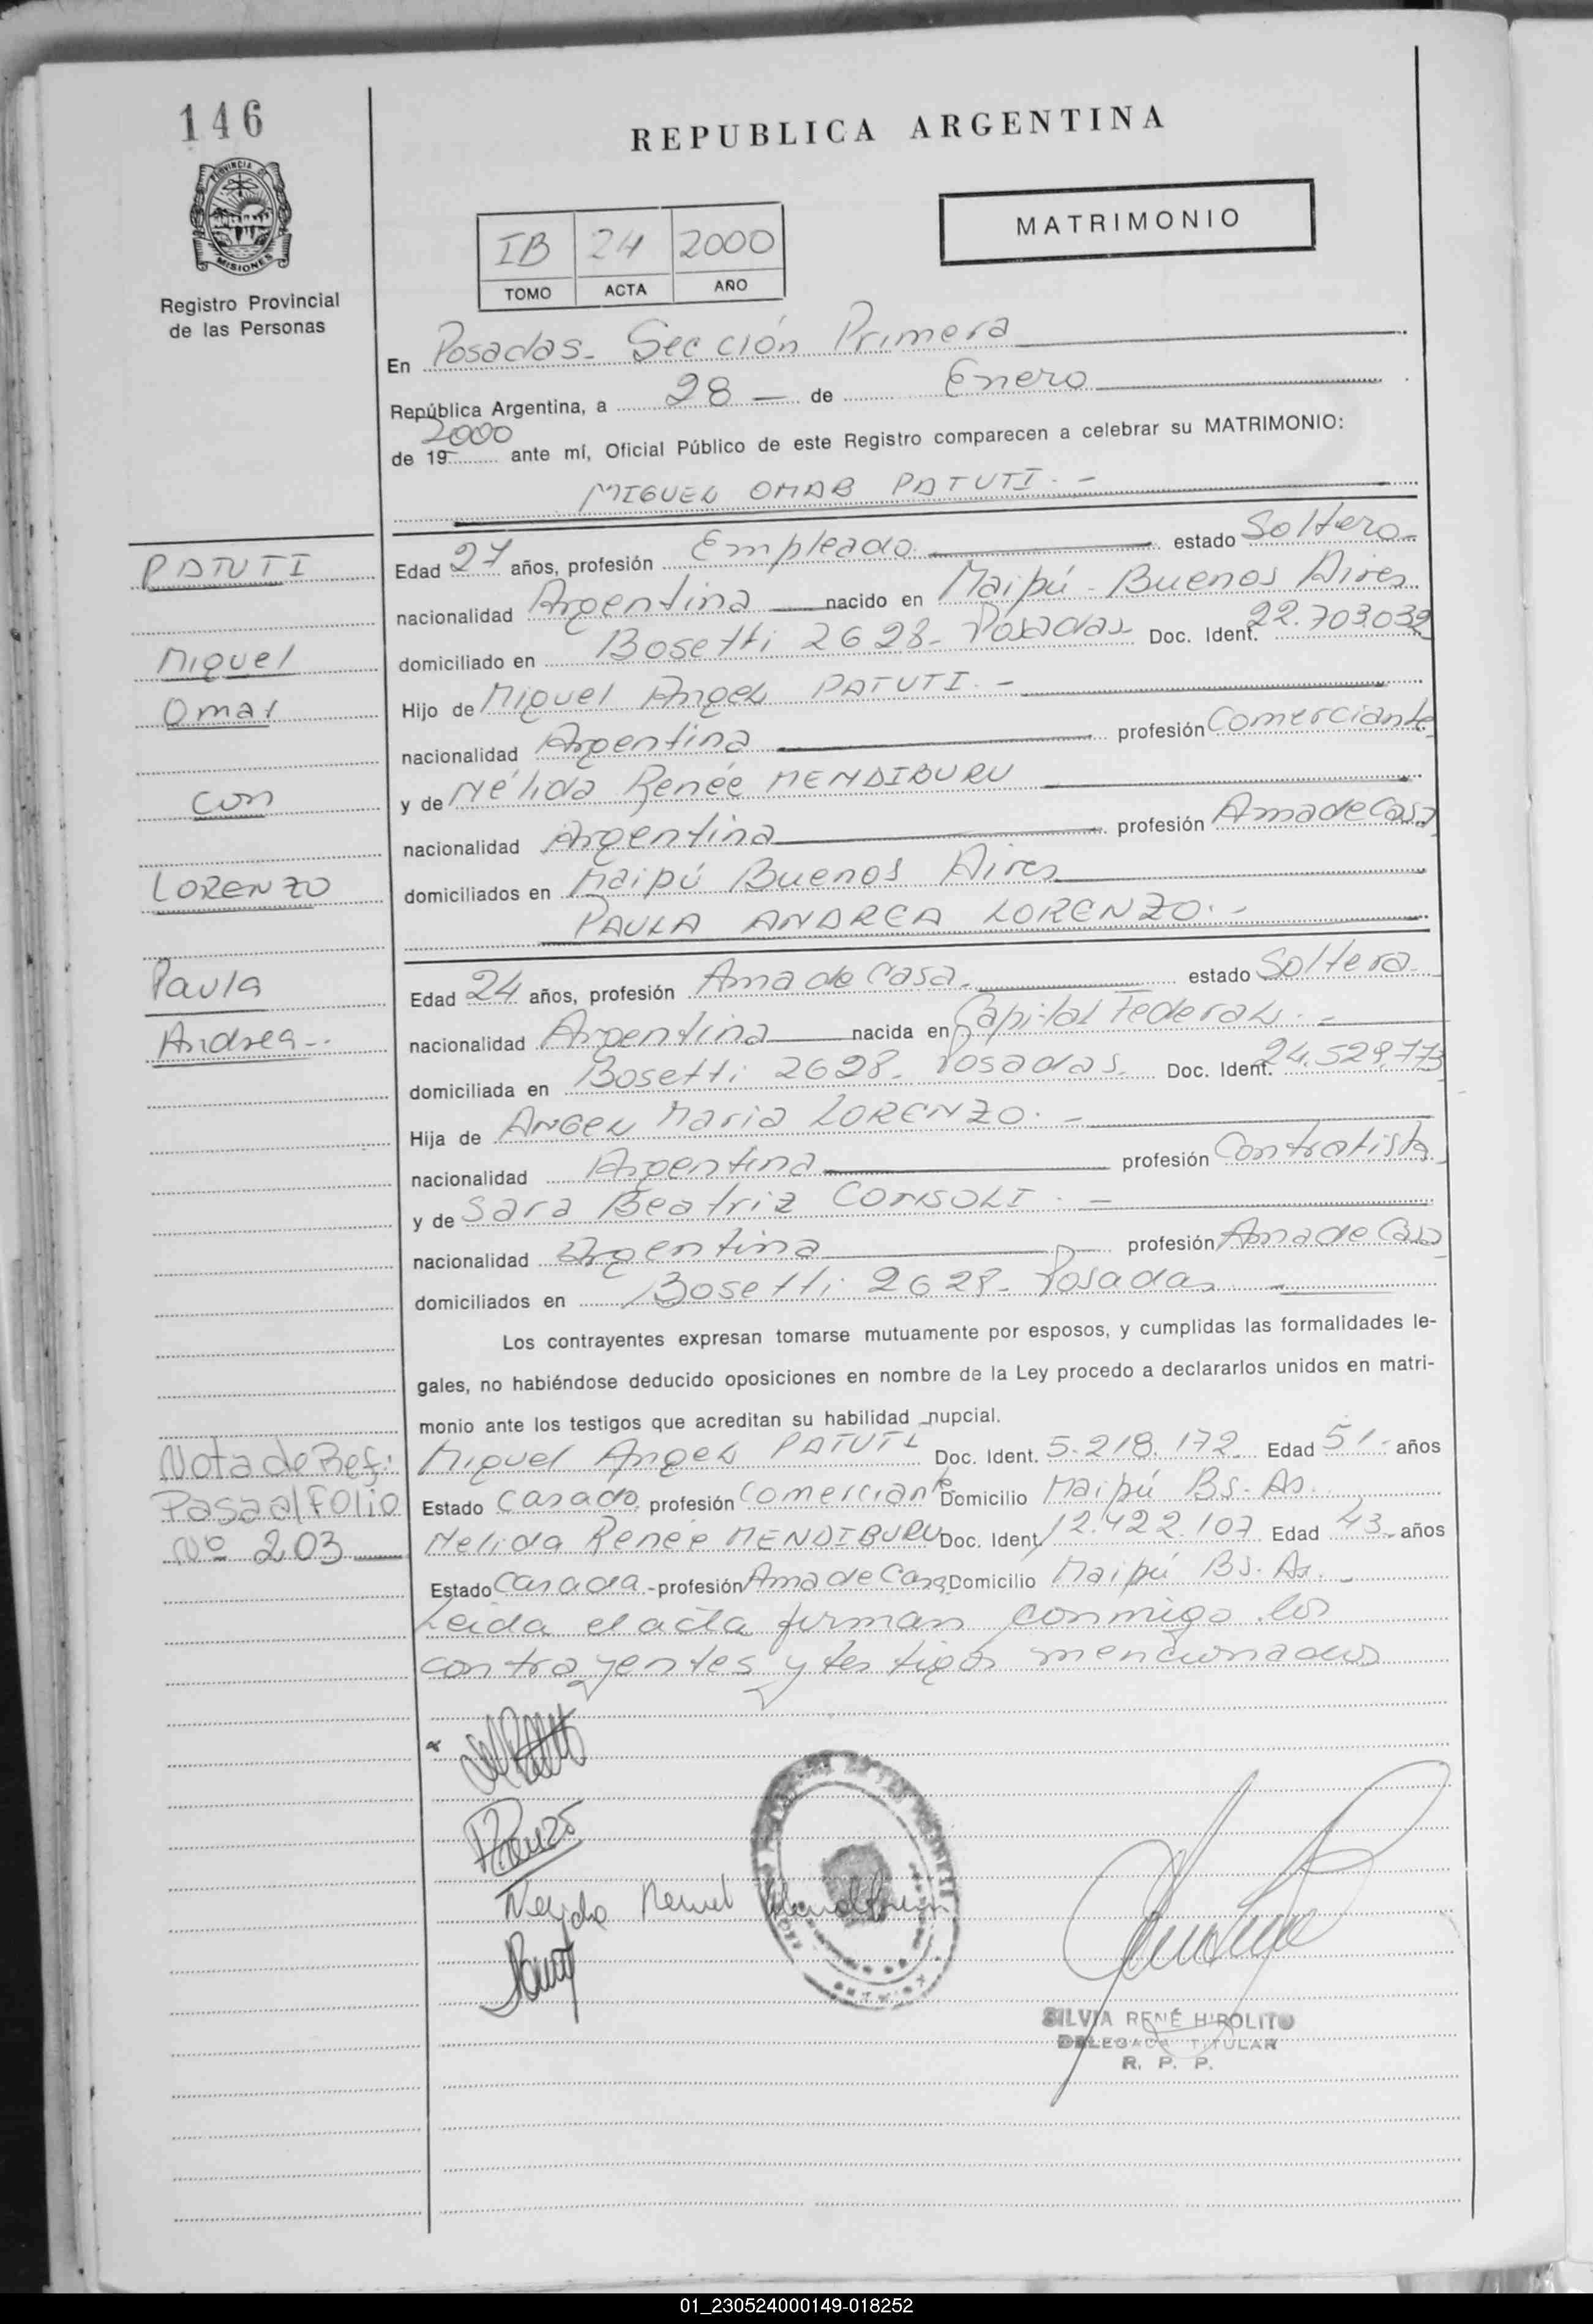 146
REPUBLICA ARGENTINA
PROVINCIA DE
MISIONES
Registro Provincial
de las Personas
IB 24 2000
TOMO ACTA AÑO
MATRIMONIO
En Posadas - Sección Primera
República Argentina, a 28 — de Enero
2000
de 19 ante mí, Oficial Público de este Registro comparecen a celebrar su MATRIMONIO:
MIGUEL OMAR PATUTI. -
PATUTI
Edad 27 años, profesión Empleado estado Soltero-
nacionalidad Argentina nacido en Maipú - Buenos Aires
Miguel
domiciliado en Bosetti 2628- Posadas Doc. Ident. 22.703.039
Omar
Hijo de Miguel Angel PATUTI. -
nacionalidad Argentina profesión Comerciante
con
y de Nélida Renée MENDIBURU
nacionalidad Argentina profesión Ama de Casa
LORENZO
domiciliados en Maipú Buenos Aires
PAULA ANDREA LORENZO. -
Paula
Edad 24 años, profesión Ama de Casa. estado Soltera-
Andrea-.
nacionalidad Argentina nacida en Capital Federal. -
domiciliada en Bosetti 2628- Posadas. Doc. Ident. 24.529.773
Hija de Angel Maria LORENZO. -
nacionalidad Argentina profesión Contratista
y de Sara Beatriz CONSOLI. -
nacionalidad Argentina profesión Ama de Casa
domiciliados en Bosetti 2628- Posadas -
Los contrayentes expresan tomarse mutuamente por esposos, y cumplidas las formalidades le-
gales, no habiéndose deducido oposiciones en nombre de la Ley procedo a declararlos unidos en matri-
monio ante los testigos que acreditan su habilidad nupcial.
Nota de Ref:
Miguel Angel PATUTI Doc. Ident. 5.218.172 Edad 51- años
Pasa al FOLIO
Estado Casado profesión Comerciante Domicilio Maipú Bs. As.
Nº 203
Nelida Renée MENDIBURU Doc. Ident 12.422.107 Edad 43 años
Estado Casada - profesión Ama de Casa Domicilio Maipú Bs. As. -
Leida el acta firman conmigo los
contrayentes y testigos mencionados
SILVIA RENÉ HIPOLITO
DELEGADA TITULAR
R. P. P.
01_230524000149-018252